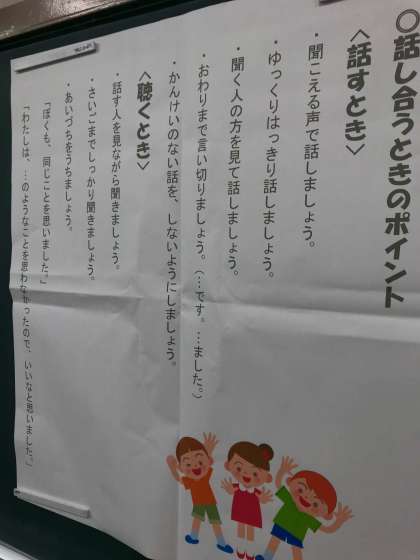 ○話し合うときのポイント
〈話すとき〉
・聞こえる声で話しましょう。
・ゆっくりはっきり話しましょう。
・聞く人の方を見て話しましょう。
・おわりまで言い切りましょう。(…です。…ました。)
・かんけいのない話を、しないようにしましょう。
〈聴くとき〉
・話す人を見ながら聞きましょう。
・さいごまでしっかり聞きましょう。
・あいづちをうちましょう。
「ぼくも、同じことを思いました。」
「わたしは、…のようなことを思わなかったので、いいなと思いました。」